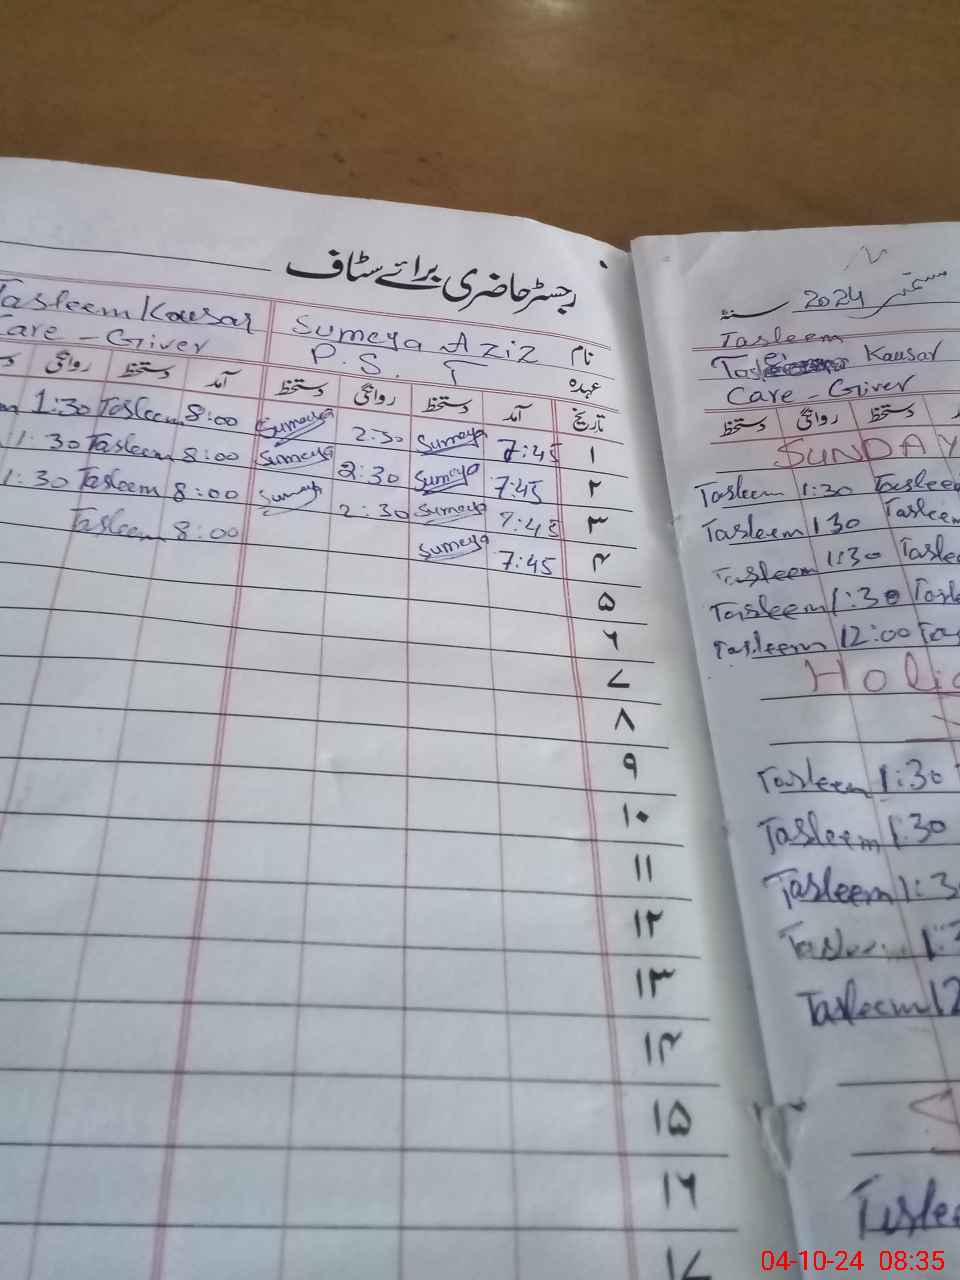 رجسٹر حاضری برائے سٹاف
نام Sumeya Aziz Tasleem Kausar
عہدہ P.S.T Care - Giver
تاریخ آمد دستخط روانگی دستخط آمد دستخط روانگی
۱ 7:45 Sumeya 2:30 Sumeya 8:00 Tasleem 1:30
۲ 7:45 Sumeya 2:30 Sumeya 8:00 Tasleem 1:30
۳ 7:45 Sumeya 2:30 Sumeya 8:00 Tasleem 1:30
۴ 7:45 Sumeya 8:00 Tasleem
۵
۶
۷
۸
۹
۱۰
۱۱
۱۲
۱۳
۱۴
۱۵
۱۶
۱۷
ستمبر 2024 سنہ
Tasleem
Kausar
Care - Giver
دستخط روانگی دستخط
SUNDAY
Tasleem 1:30 Tasleem
Tasleem 1:30 Tasleem
Tasleem 1:30
Tasleem 1:30
Tasleem 12:00
Tasleem 1:30
Tasleem 1:30
Tasleem
Tasleem
Tasleem 12
04-10-24 08:35